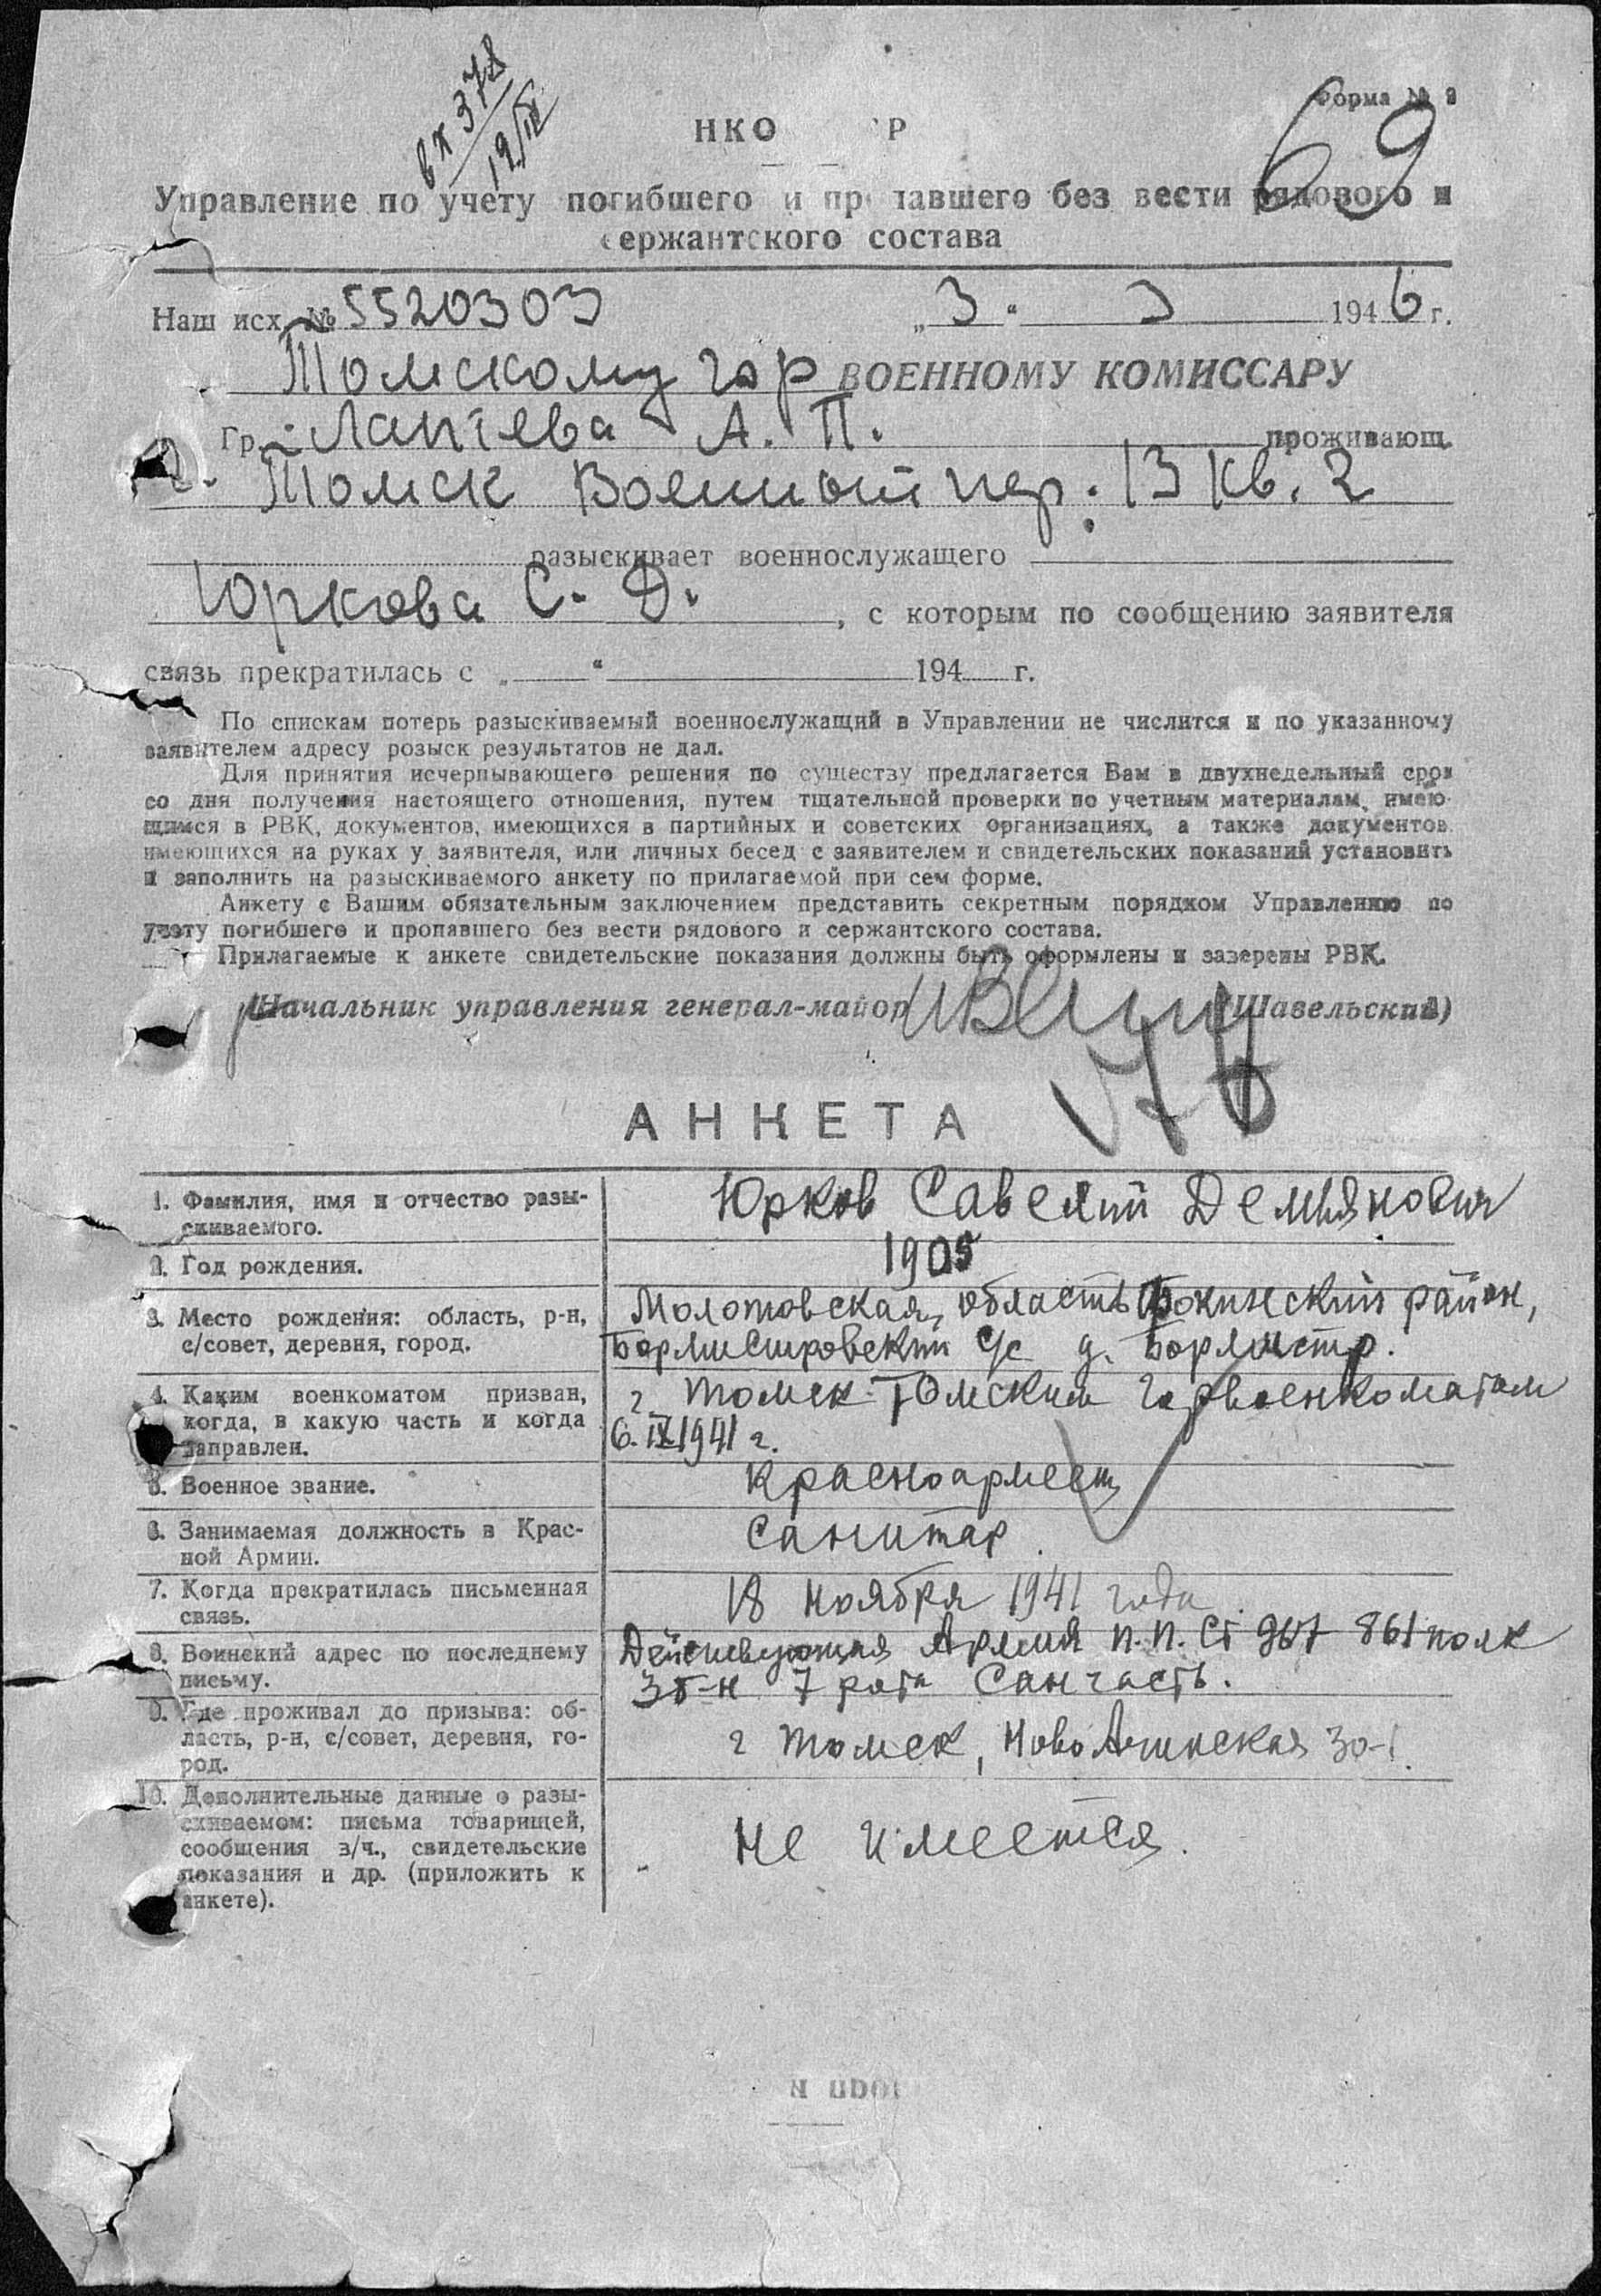 Форма № 2
69
вх 378
19/IV
НКО Р
Управление по учету погибшего и пропавшего без вести рядового и
сержантского состава
Наш исх. № 5520303 „3“ 1946 г.
Томскому гор ВОЕННОМУ КОМИССАРУ
Гр. Лаптева А. П. проживающ.
г. Томск Военный пер. 13 кв. 2
разыскивает военнослужащего
Юркова С. Д. , с которым по сообщению заявителя
связь прекратилась с „ “ 194 г.
По спискам потерь разыскиваемый военнослужащий в Управлении не числится и по указанному
заявителем адресу розыск результатов не дал.
Для принятия исчерпывающего решения по существу предлагается Вам в двухнедельный срок
со дня получения настоящего отношения, путем тщательной проверки по учетным материалам, имею-
щимся в РВК, документов, имеющихся в партийных и советских организациях, а также документов
имеющихся на руках у заявителя, или личных бесед с заявителем и свидетельских показаний установить
и заполнить на разыскиваемого анкету по прилагаемой при сем форме.
Анкету с Вашим обязательным заключением представить секретным порядком Управлению по
учету погибшего и пропавшего без вести рядового и сержантского состава.
Прилагаемые к анкете свидетельские показания должны быть оформлены и заверены РВК.
Начальник управления генерал-майор (Шавельский)
АНКЕТА
1. Фамилия, имя и отчество разы-
скиваемого.
Юрков Савелий Демьянович
2. Год рождения.
1905
3. Место рождения: область, р-н,
с/совет, деревня, город.
Молотовская, область район,
Бормистровский с/с д. Бормистр.
4. Каким военкоматом призван,
когда, в какую часть и когда
направлен.
г. Томск Томским Горвоенкоматом
6.IX 1941 г.
5. Военное звание.
Красноармеец
6. Занимаемая должность в Крас-
ной Армии.
Санитар.
7. Когда прекратилась письменная
связь.
18 ноября 1941 года.
8. Воинский адрес по последнему
письму.
Действующая Армия п.п. Ст 967 861 полк
3 б-н 7 рота Санчасть.
9. Где проживал до призыва: об-
ласть, р-н, с/совет, деревня, го-
род.
г Томск, Ново Ачинская 30-1.
10. Дополнительные данные о разы-
скиваемом: письма товарищей,
сообщения з/ч., свидетельские
показания и др. (приложить к
анкете).
Не имеется.